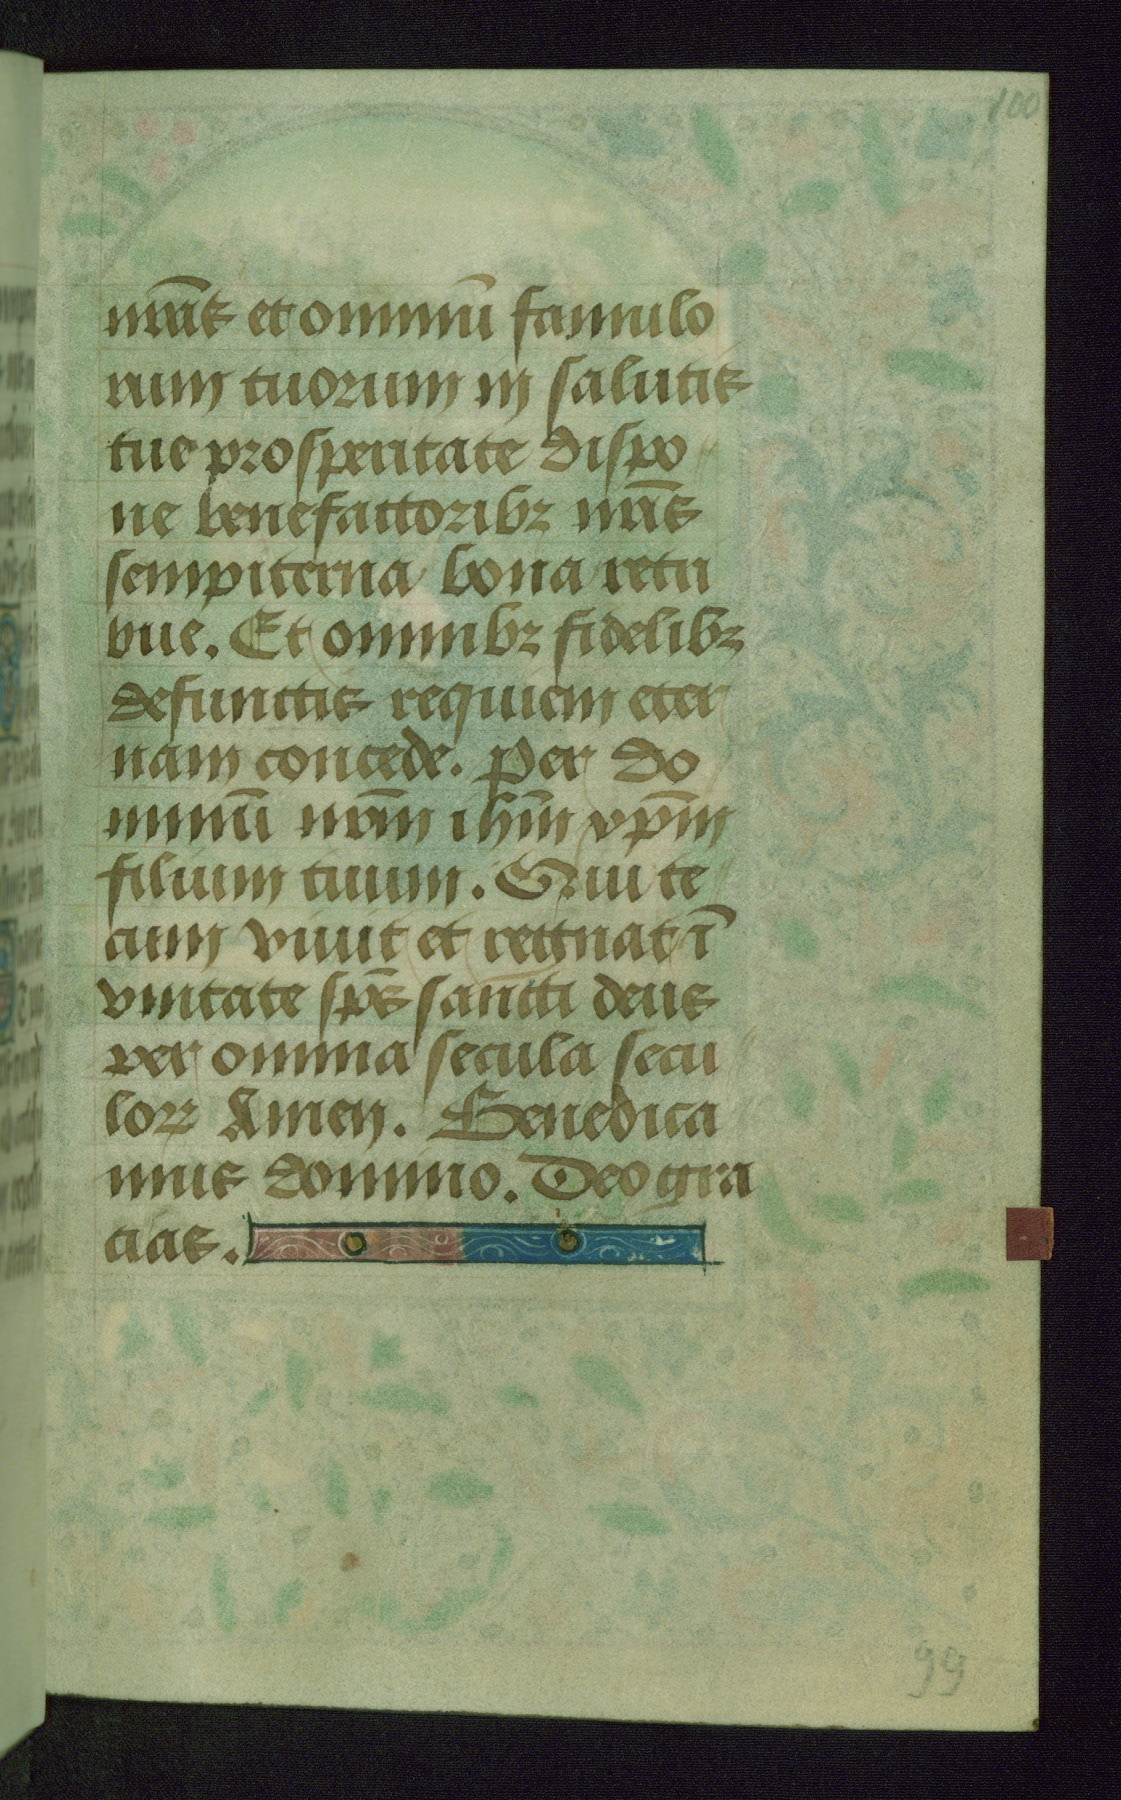 100
nr̄as et omniū famulo
rum tuorum in salutis
tue prosperitate dispo
ne benefactoribꝫ nr̄is
sempiterna bona retri
bue. Et omnibꝫ fidelibꝫ
defunctis requiem eter
nam concede. Per do
minū nr̄m ihm̄ xp̄m
filium tuum. Qui te
cum viuit et regnat ī
vnitate sp̄s sancti deus
per omnia secula secu
loꝝ Amen. Benedica
mus domino. Deo gra
cias.
99